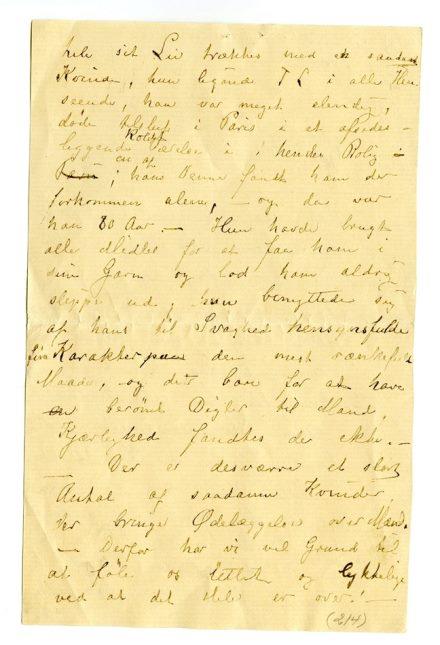 hele sit Liv trækkes med en saadan
Kvinde, hun lignede T L i alle Hen
seende, han var meget elendig,
døde i Paris i et afsides-
liggende Koldt Værelse i hendes Bolig i
en af; hans Venner fandt ham der
forkommen alene, – og da var
han 80 Aar. – Hun havde brugt
alle Midler for at faa ham i
sine Garn og lod ham aldrig
slippe ud, hun benyttede sig
af hans til Svaghed hensynsfulde
fine Karakter paa den mest rænkefulde
Maade, og det bare for at have
en berømt Digter til Mand,
Kjærlighed fandtes der ikke. –
– Der er desværre et stort
Antal af saadanne Kvinder,
der bringe Ødelæggelse over Mænd.
– Derfor har vi vel Grund til
at føle os lettet og lykkelige
ved at det Hele er over! –
(214)